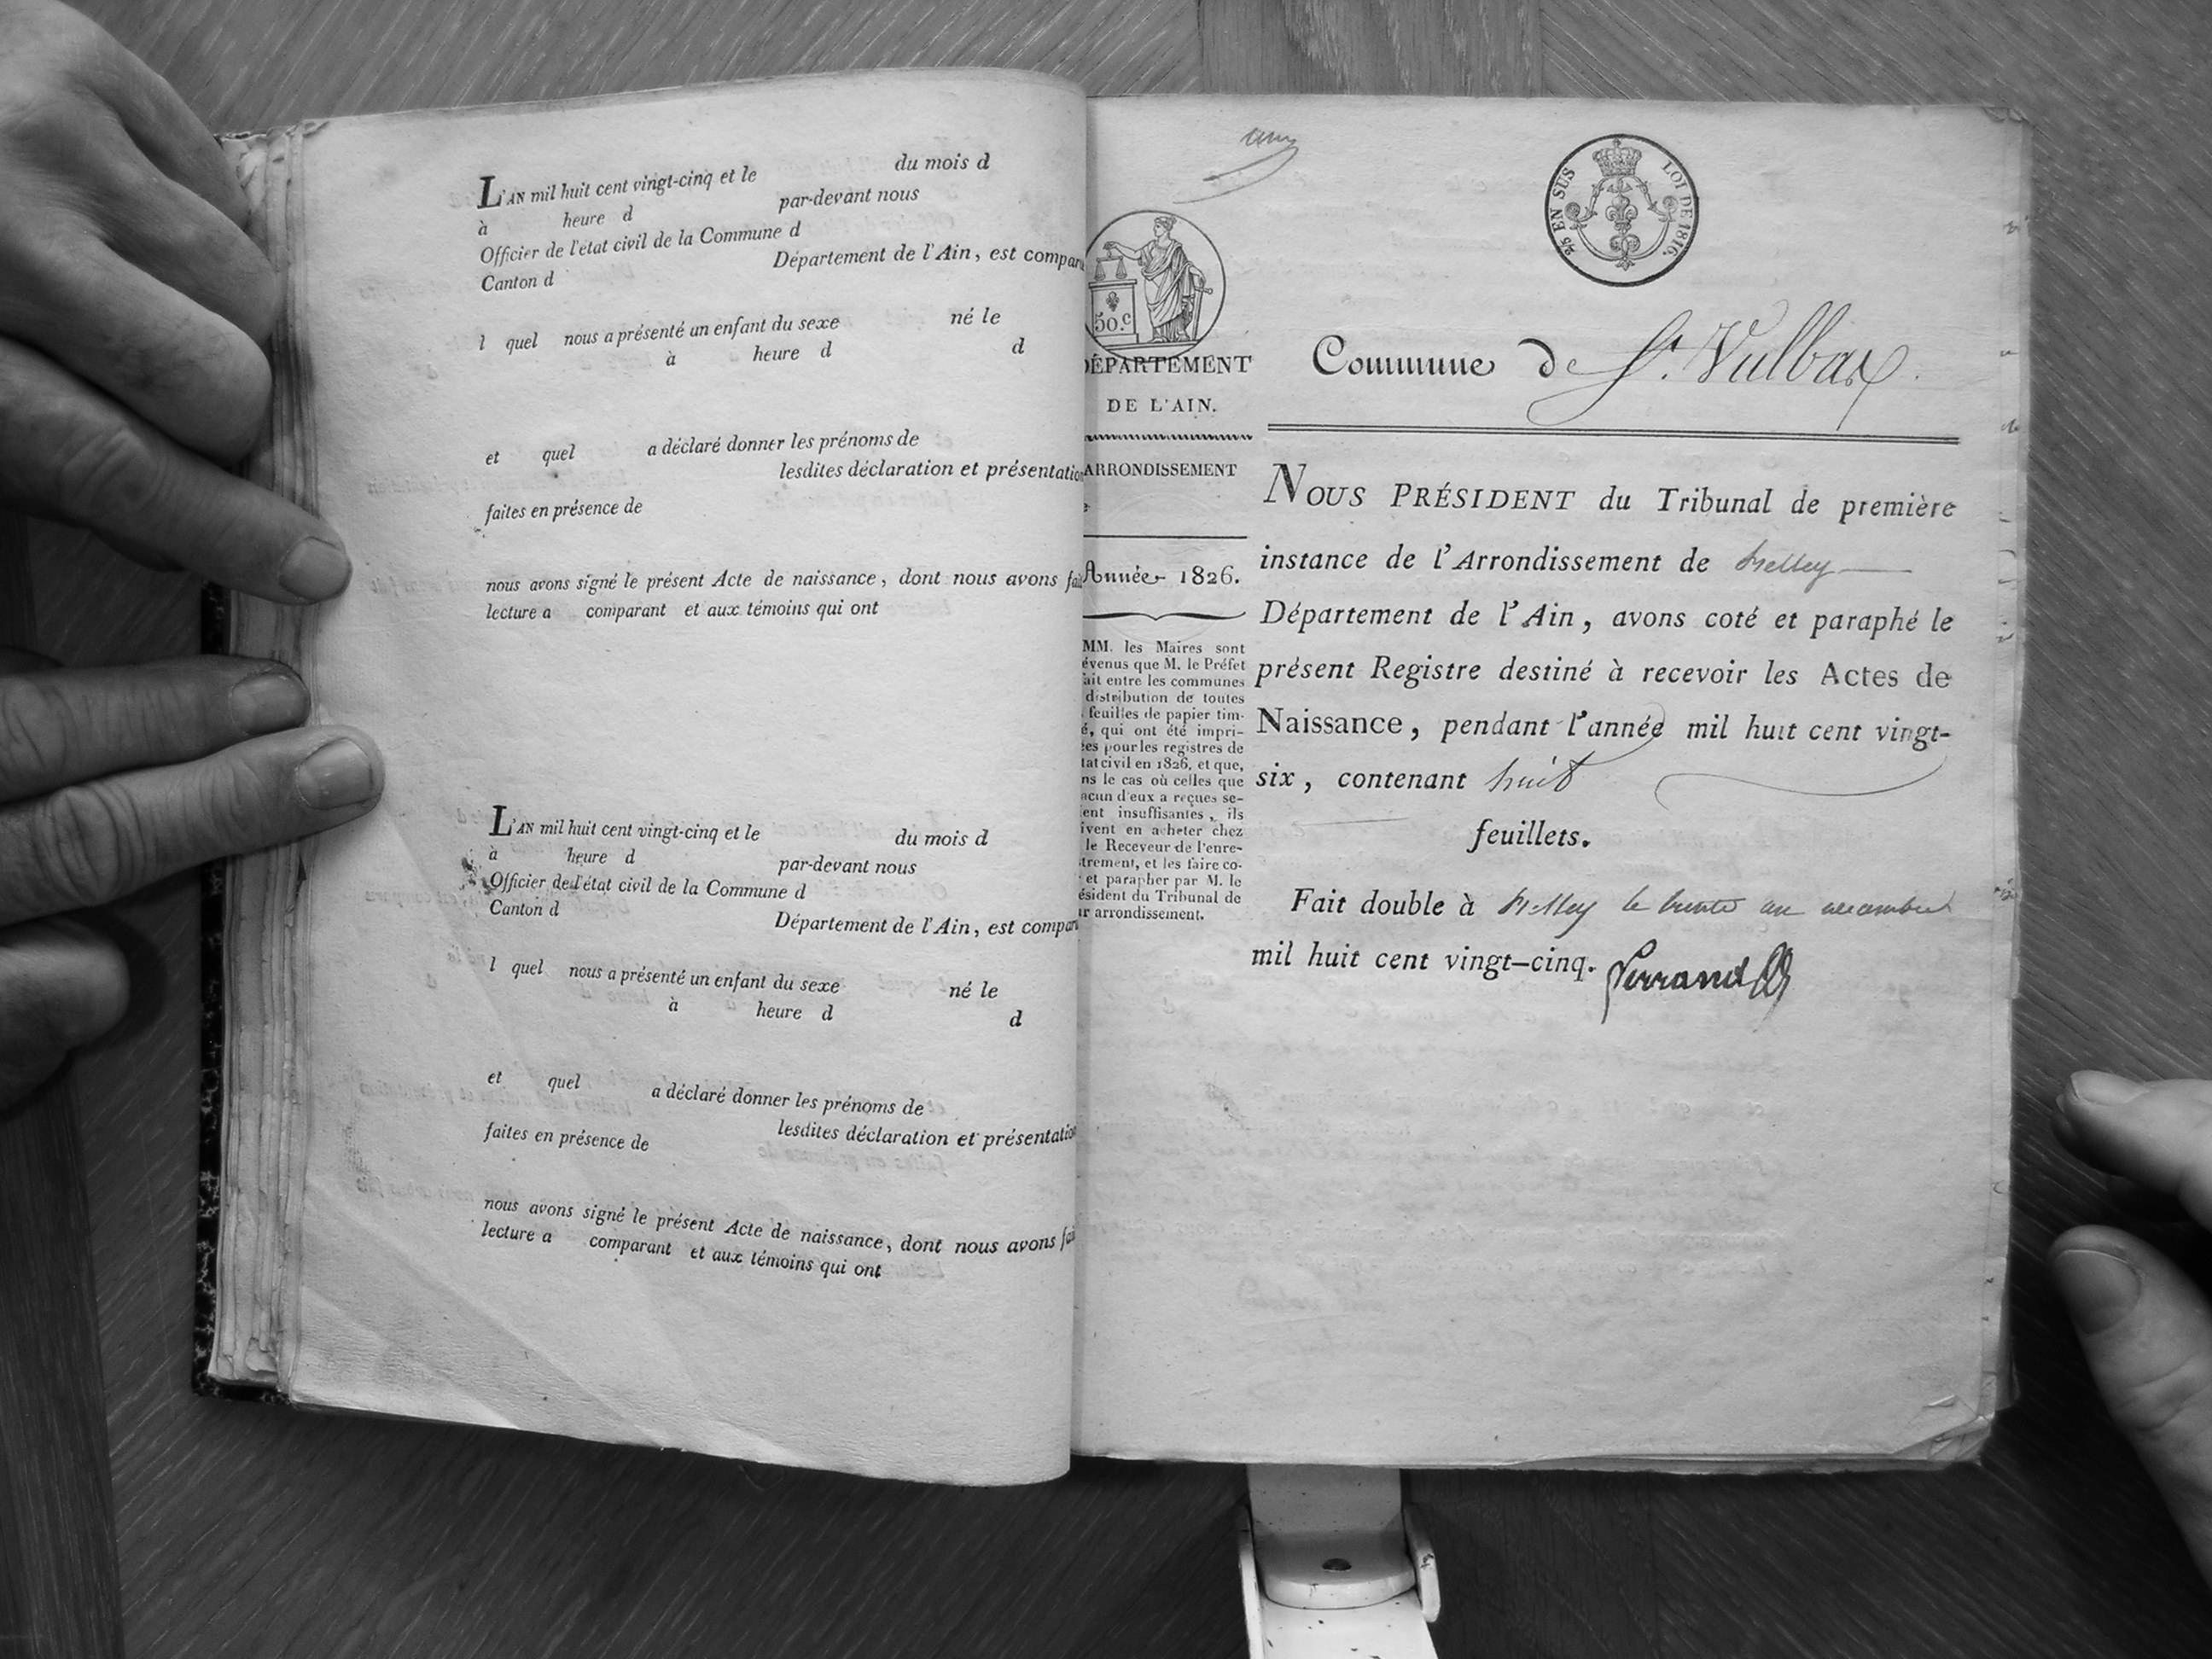 L'AN mil huit cent vingt-cinq et le du mois d
à heure d par-devant nous
Officier de l'état civil de la Commune d
Canton d Département de l'Ain, est compar
l quel nous a présenté un enfant du sexe né le
à heure d d
et quel a déclaré donner les prénoms de
lesdites déclaration et présentatio
faites en présence de
nous avons signé le présent Acte de naissance, dont nous avons fai
lecture a comparant et aux témoins qui ont
L'AN mil huit cent vingt-cinq et le du mois d
à heure d par-devant nous
Officier de l'état civil de la Commune d
Canton d Département de l'Ain, est compar
l quel nous a présenté un enfant du sexe né le
à heure d d
et quel a déclaré donner les prénoms de
lesdites déclaration et présentatio
faites en présence de
nous avons signé le présent Acte de naissance, dont nous avons fai
lecture a comparant et aux témoins qui ont
50.c
DÉPARTEMENT
DE L'AIN.
ARRONDISSEMENT
Année 1826.
MM. les Maires sont
évenus que M. le Préfet
ait entre les communes
distribution de toutes
feuilles de papier tim-
é, qui ont été impri-
ées pour les registres de
tat civil en 1826, et que,
ns le cas où celles que
acun d'eux a reçues se-
ient insuffisantes, ils
ivent en acheter chez
le Receveur de l'enre-
strement, et les faire co-
et parapher par M. le
ésident du Tribunal de
ur arrondissement.
25 EN SUS LOI DE 1816
Commune de St. Vulbax.
NOUS PRÉSIDENT du Tribunal de première
instance de l'Arrondissement de Belley
Département de l'Ain, avons coté et paraphé le
présent Registre destiné à recevoir les Actes de
Naissance, pendant l'année mil huit cent vingt-
six, contenant huit
feuillets.
Fait double à Belley le trente un decembre
mil huit cent vingt-cinq.